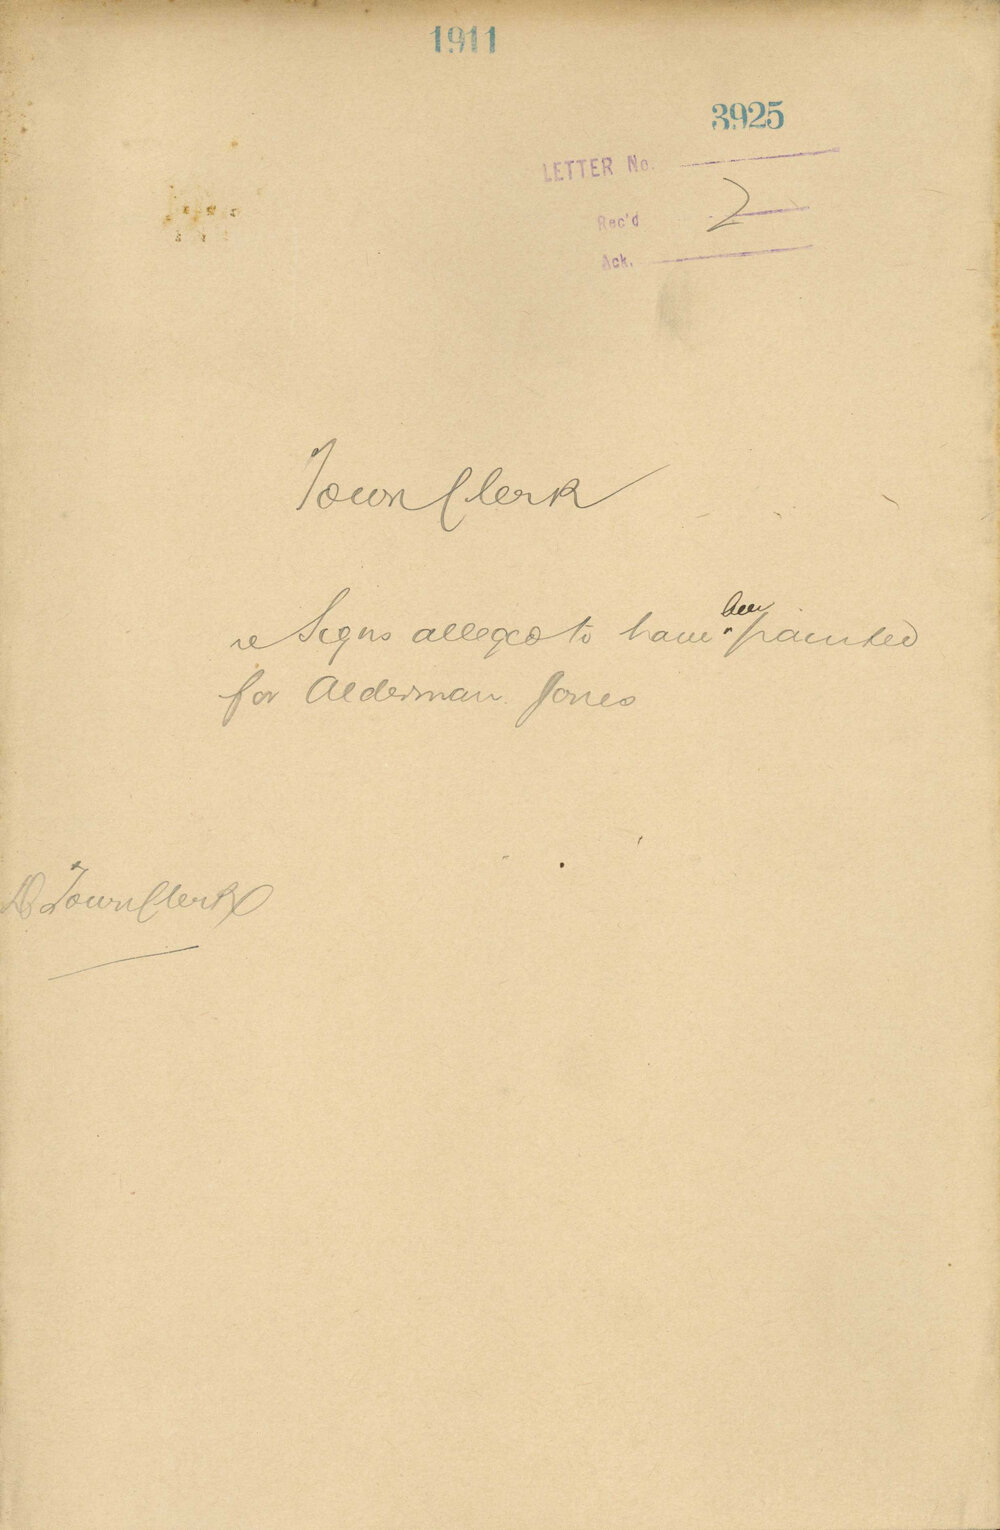 1911
3925
LETTER No.
Rec'd 2
Ack.
Town Clerk
re Signs alleged to have been painted
for Alderman Jones
Town Clerk